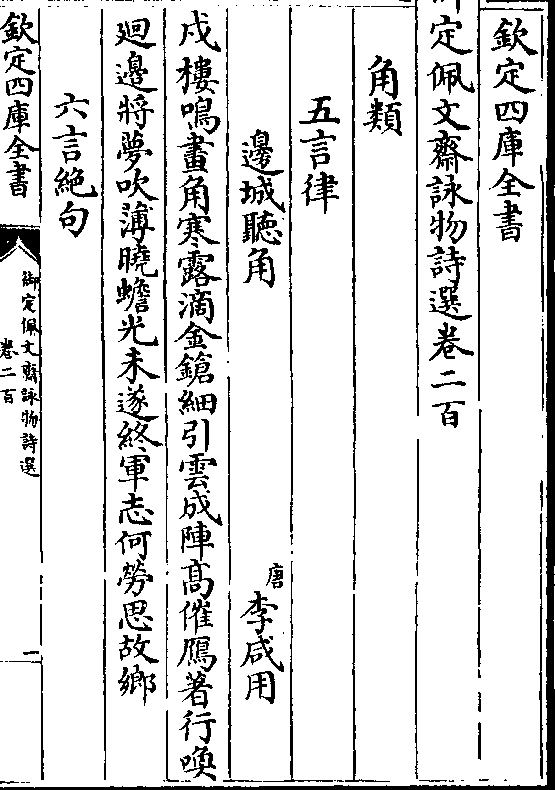 欽定四庫全書
御定佩文齋詠物詩選卷二百
角類
五言律
邊城聽角
唐 李咸用
戍樓鳴畫角寒露滴金鎗細引雲成陣高催鴈著行喚
廻邊將夢吹薄曉蟾光未遂終軍志何勞思故鄉
六言絶句
欽定四庫全書
御定佩文齋詠物詩選
卷二百
一